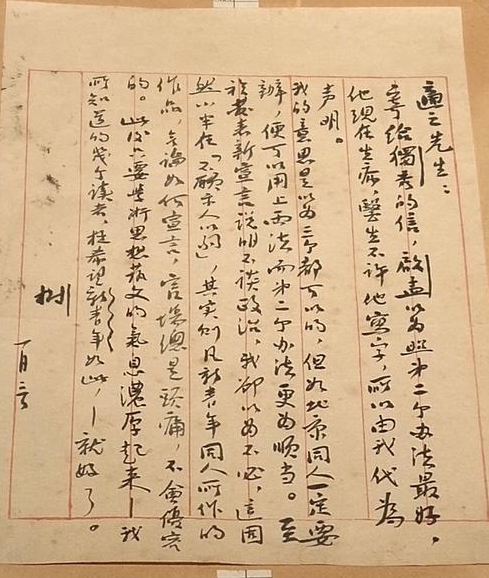 適之先生：
寄給獨秀的信，啟孟以為照第二个办法最好，
他現在生病，醫生不許他寫字，所以由我代為
声明。
我的意思是以為三个都可以的，但如北京同人一定要
辦，便可以用上兩法而第二个办法更為順当。至
於發表新宣言說明不談政治，我却以為不必，這固
然小半在「不願示人以弱」，其实則凡新青年同人所作的
作品，無論如何宣言，官場總是頭痛，不會優容
的。此後只要學術思想藝文的氣息濃厚起来——我
所知道的幾个讀者，極希望新青年如此，——就好了。
树
一月三日